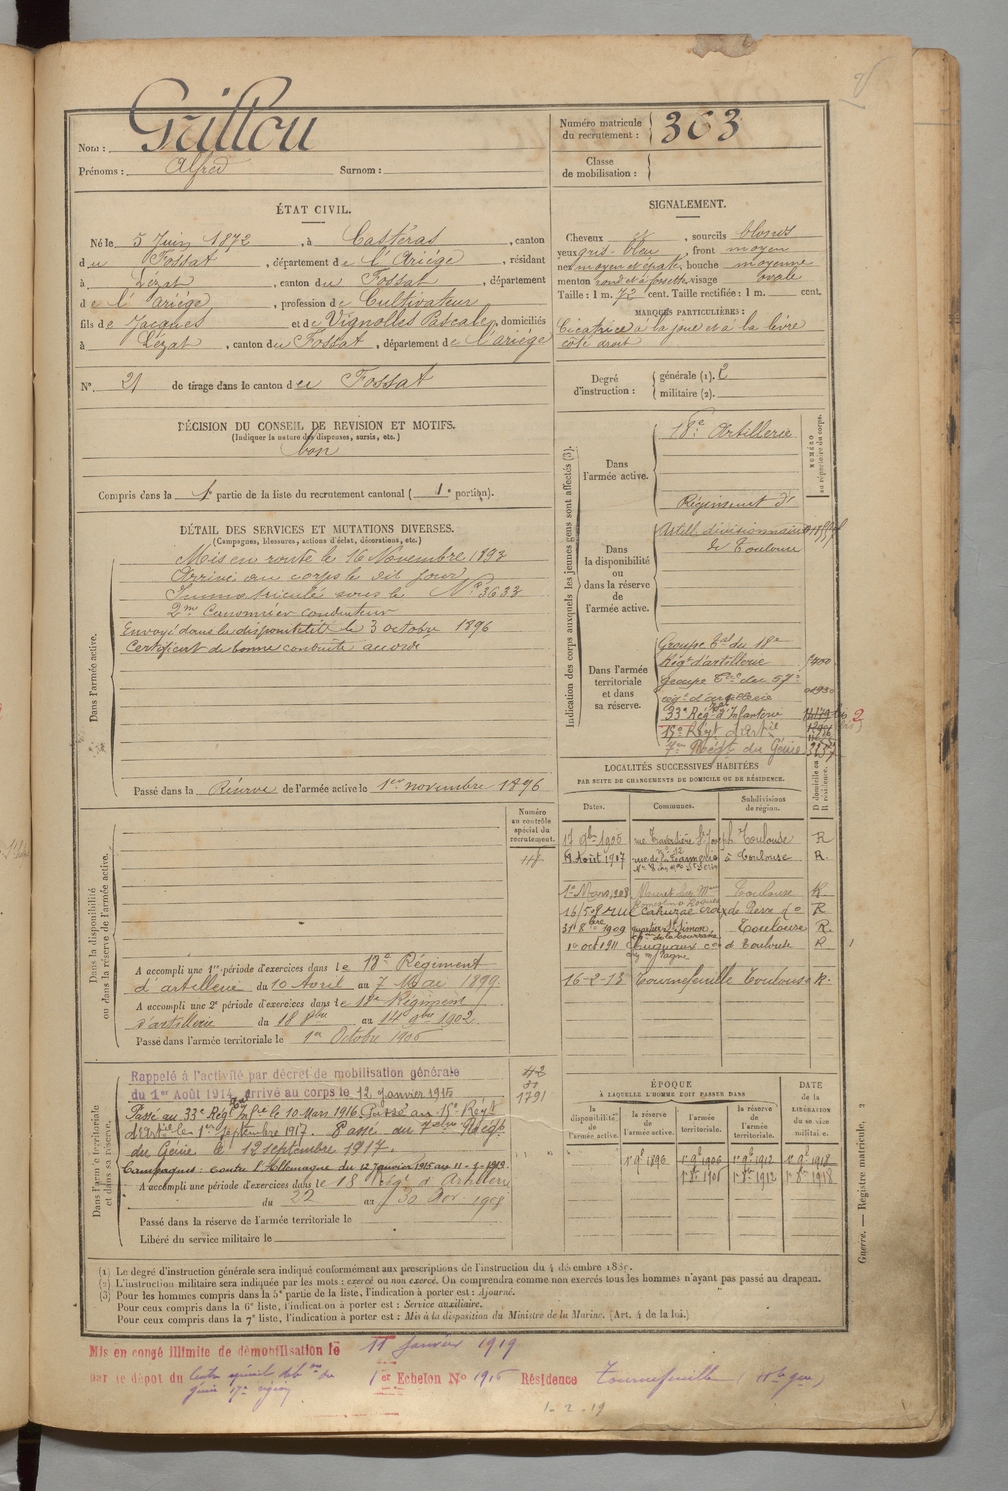 Nom : Grillou
Prénoms : Alfred Surnom :
Numéro matricule du recrutement : 303
Classe de mobilisation :
ÉTAT CIVIL.
Né le 5 Juin 1872, à Castéras, canton
du Fossat, département de l'Ariége, résidant
à Lézat, canton du Fossat, département
de l'ariége, profession de Cultivateur
fils de Jacques et de Vignolles Pascale, domiciliés
à Lézat, canton du Fossat, département de l'ariége
N° 21 de tirage dans le canton du Fossat
SIGNALEMENT.
Cheveux et, sourcils blonds
yeux gris-bleu, front moyen
nez moyen et épaté, bouche moyenne
menton rond et à fossette, visage ovale
Taille : 1 m. 72 cent. Taille rectifiée : 1 m. cent.
MARQUES PARTICULIÈRES :
Cicatrice à la joue et à la lèvre
côté droit
Degré d'instruction :
générale (1). 2
militaire (2).
DÉCISION DU CONSEIL DE REVISION ET MOTIFS.
(Indiquer la nature des dispenses, sursis, etc.)
bon
Compris dans la 1e partie de la liste du recrutement cantonal ( 1e portion).
DÉTAIL DES SERVICES ET MUTATIONS DIVERSES.
(Campagnes, blessures, actions d'éclat, décorations, etc.)
Dans l'armée active.
Mis en route le 16 Novembre 1893
Arrivé au corps le dit jour
Immatriculé sous le N° 3633
2me Canonnier conducteur
Envoyé dans la disponibilité le 3 octobre 1896
Certificat de bonne conduite accordé
Passé dans la Réserve de l'armée active le 1er novembre 1896
Indication des corps auxquels les jeunes gens sont affectés (3).
NUMÉRO au répertoire du corps.
Dans l'armée active.
18e Artillerie
Dans la disponibilité ou dans la réserve de l'armée active.
Régiment d'
Artill. divisionnaire
de Toulouse
Dans l'armée territoriale et dans sa réserve.
Groupe Tal du 18e
Régt d'artillerie
Groupe du 57e
régt d'artillerie
33e Régt Tal d'Infanterie
15e Régt d'Artie
7me Régt du Génie
LOCALITÉS SUCCESSIVES HABITÉES
PAR SUITE DE CHANGEMENTS DE DOMICILE OU DE RÉSIDENCE.
Dates. Communes. Subdivisions de région. D domicile ou R résidence.
Joseph Toulouse R
Août 1907 à Toulouse R.
1er Mars 1908 Toulouse R
de Pierre do R
31 8bre 1909 quartier St Simon, Toulouse R.
1er oct 1911 d Toulouse R
16-2-13 Tournefeuille Toulouse R.
Dans la disponibilité ou dans la réserve de l'armée active.
Numéro au contrôle spécial du recrutement.
A accompli une 1re période d'exercices dans le 18e Régiment
d'artillerie du 10 Avril au 7 Mai 1899.
A accompli une 2e période d'exercices dans le 18e Régiment
d'artillerie du 18 8bre au 14 9bre 1902.
Passé dans l'armée territoriale le 1er Octobre 1906
Dans l'armée territoriale et dans sa réserve.
Rappelé à l'activité par décret de mobilisation générale
du 1er Août 1914, arrivé au corps le 12 janvier 1915
Passé au 33e Régt Tal Infrie le 10 Mars 1916. Passé au 15e Régt
d'Artie le 1er Septembre 1917. Passé au 7ème Régt
du Génie le 12 septembre 1917.
Campagnes : contre l'Allemagne du 12 Janvier 1915 au 11-1-1919.
A accompli une période d'exercices dans le 18e régt d'Artillerie
du 22 au 30 1908
Passé dans la réserve de l'armée territoriale le
Libéré du service militaire le
42
31
1791
ÉPOQUE
À LAQUELLE L'HOMME DOIT PASSER DANS
DATE de la LIBÉRATION du service militaire.
la disponibilité de l'armée active. la réserve de l'armée active. l'armée territoriale. la réserve de l'armée territoriale.
1er 9b 1896 1er 9b 1906 1er 9b 1912 1er 9b 1918
1er 8re 1906 1er 8re 1912 1er 8re 1918
(1) Le degré d'instruction générale sera indiqué conformément aux prescriptions de l'instruction du 4 décembre 1889.
(2) L'instruction militaire sera indiquée par les mots : exercé ou non exercé. On comprendra comme non exercés tous les hommes n'ayant pas passé au drapeau.
(3) Pour les hommes compris dans la 5e partie de la liste, l'indication à porter est : Ajourné.
Pour ceux compris dans la 6e liste, l'indication à porter est : Service auxiliaire.
Pour ceux compris dans la 7e liste, l'indication à porter est : Mis à la disposition du Ministre de la Marine. (Art. 4 de la loi.)
Guerre. — Registre matricule. 2
Mis en congé illimité de démobilisation le 11 Janvier 1919
par le dépot du 1er Echelon No 1916 Résidence Tournefeuille (Hte Gne)
génie 17e région
1-2-19